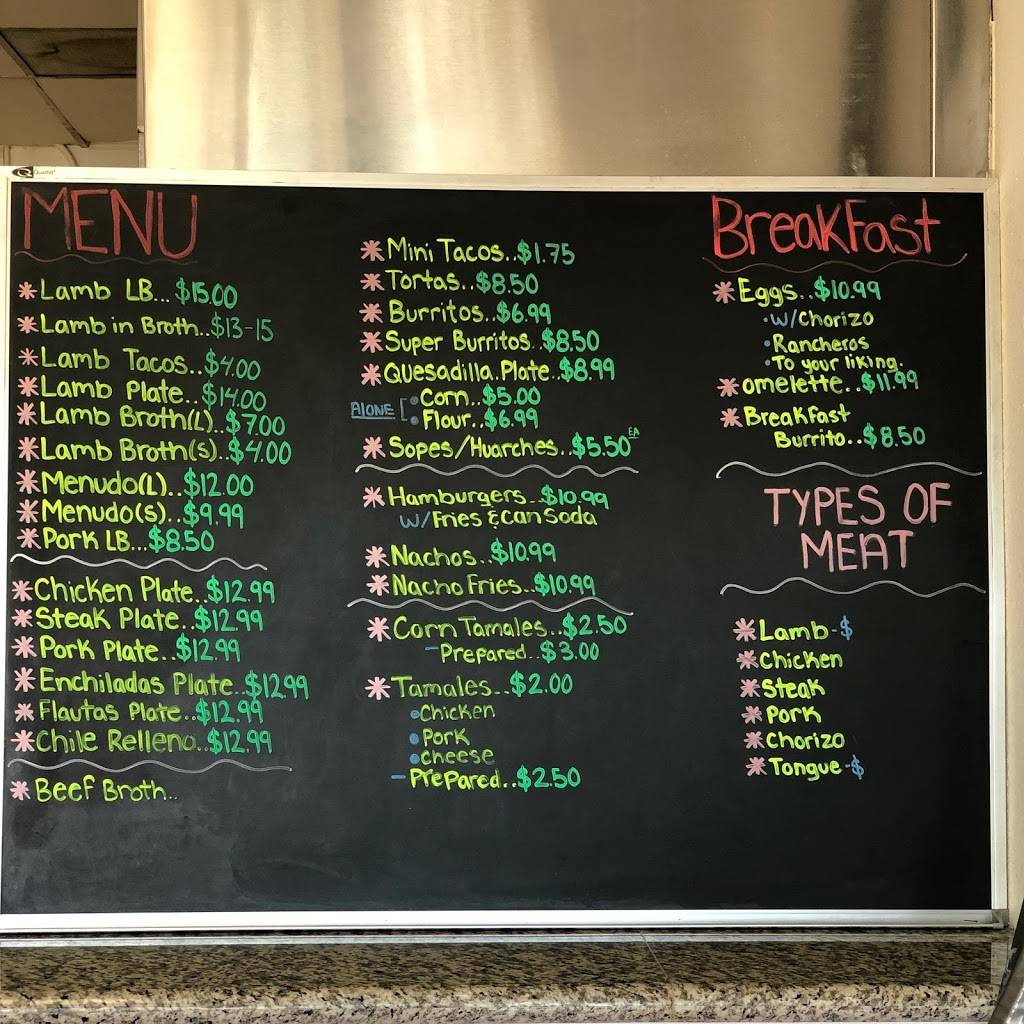 Quartet
MENU
*Lamb LB...$15.00
*Lamb in Broth..$13-15
*Lamb Tacos..$4.00
*Lamb Plate..$14.00
*Lamb Broth(L)..$7.00
*Lamb Broth(s)..$4.00
*Menudo(L)..$12.00
*Menudo(s)..$9.99
*Pork LB...$8.50
*Chicken Plate..$12.99
*Steak Plate..$12.99
*Pork Plate..$12.99
*Enchiladas Plate..$12.99
*Flautas Plate..$12.99
*Chile Relleno..$12.99
*Beef Broth..
*Mini Tacos..$1.75
*Tortas..$8.50
*Burritos..$6.99
*Super Burritos..$8.50
*Quesadilla Plate..$8.99
Alone [•Corn..$5.00
•Flour..$6.99
*Sopes/Huarches..$5.50 EA
*Hamburgers..$10.99
w/Fries & Can Soda
*Nachos..$10.99
*Nacho Fries..$10.99
*Corn Tamales..$2.50
-Prepared..$3.00
*Tamales..$2.00
•Chicken
•Pork
•Cheese
-Prepared..$2.50
BreakFast
*Eggs..$10.99
•w/Chorizo
•Rancheros
•To your liking.
*omelette..$11.99
*BreakFast
Burrito..$8.50
TYPES OF
MEAT
*Lamb-$
*Chicken
*Steak
*Pork
*Chorizo
*Tongue-$